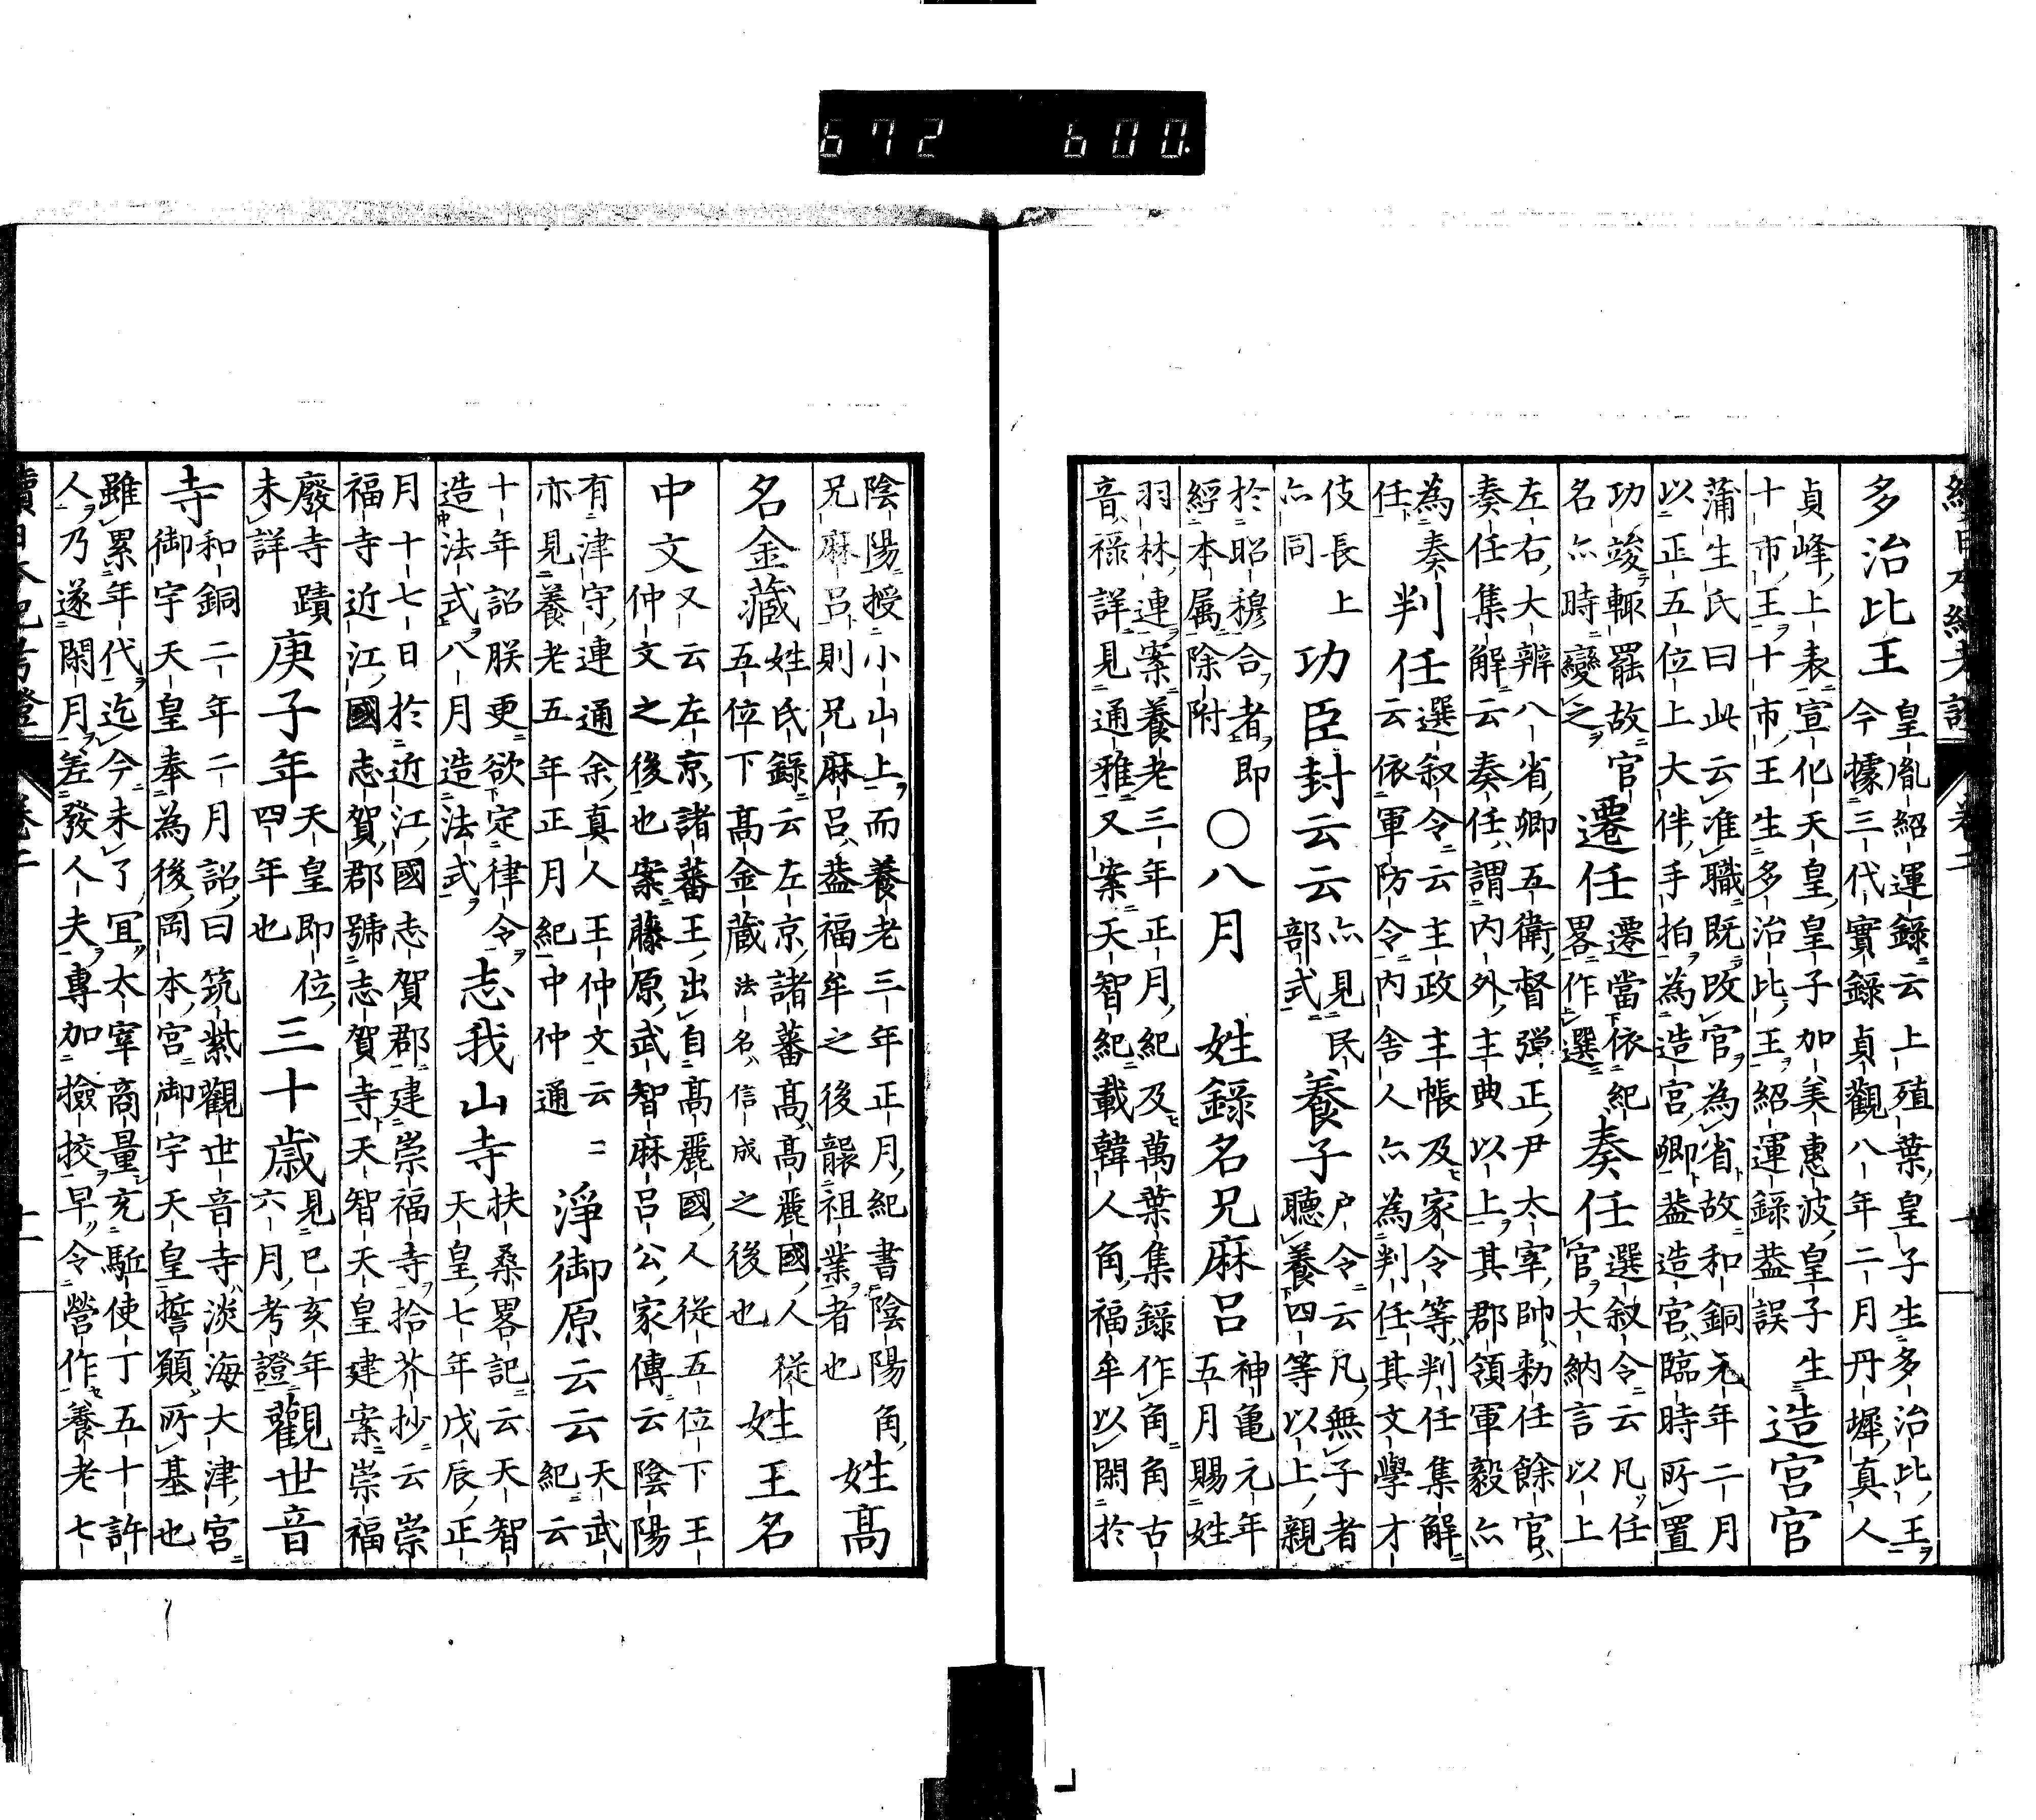 672 600.
多治比王 皇胤紹運錄云上殖葉皇子生多治比王
今據三代實錄貞觀八年二月丹墀真人
貞峰上表宣化天皇皇子加美惠波皇子生
十市王十市王生多治比王紹運錄葢誤 造宮官
蒲生氏曰此云准職既改官為省故和銅元年二月
以正五位上大伴手拍為造宮卿葢造宮臨時所置
功竣輙罷故官
名亦時變之 遷任 遷當依紀
畧作選 奏任 選叙令云凡任
官大納言以上
左右大辨八省卿五衛督彈正尹太宰帥勅任餘官
奏任集解云奏任謂內外主典以上其郡領軍毅亦
為奏
任 判任 選叙令云主政主帳及家令等判任集解
云依軍防令內舍人亦為判任其文學才
伎長上
亦同 功臣封云云 亦見民
部式 養子 户令云凡無子者
聽養四等以上親
於昭穆合者即
經本属除附 〇八月 姓錄名兄麻呂 神亀元年
五月賜姓
羽林連案養老三年正月紀及萬葉集錄作角角古
音祿詳見通雅又案天智紀載韓人角福牟以閑於
陰陽授小山上而養老三年正月紀書陰陽角
兄麻呂則兄麻呂葢福牟之後襲祖業者也 姓高
名金藏 姓氏錄云左京諸蕃高高麗國人従
五位下高金藏法名信成之後也 姓王名
中文 又云左京諸蕃王出自高麗國人従五位下王
仲文之後也案藤原武智麻呂公家傳云陰陽
有津守連通余真人王仲文云二
亦見養老五年正月紀中仲通 淨御原云云 天武
紀云
十年詔朕更欲定律令
造法式八月造法式 志我山寺 扶桑畧記云天智
天皇七年戊辰正
月十七日於近江國志賀郡建崇福寺拾芥抄云崇
福寺近江國志賀郡號志賀寺天智天皇建案崇福
廢寺蹟
未詳 庚子年 天皇即位
四年也 三十歳 見己亥年
六月考證 觀世音
寺 和銅二年二月詔曰筑紫觀世音寺淡海大津宮
御宇天皇奉為後岡本宮御宇天皇誓願所基也
雖累年代迄今未了宜太宰商量充駈使丁五十許
人乃遂閑月差發人夫專加撿挍早令營作養老七